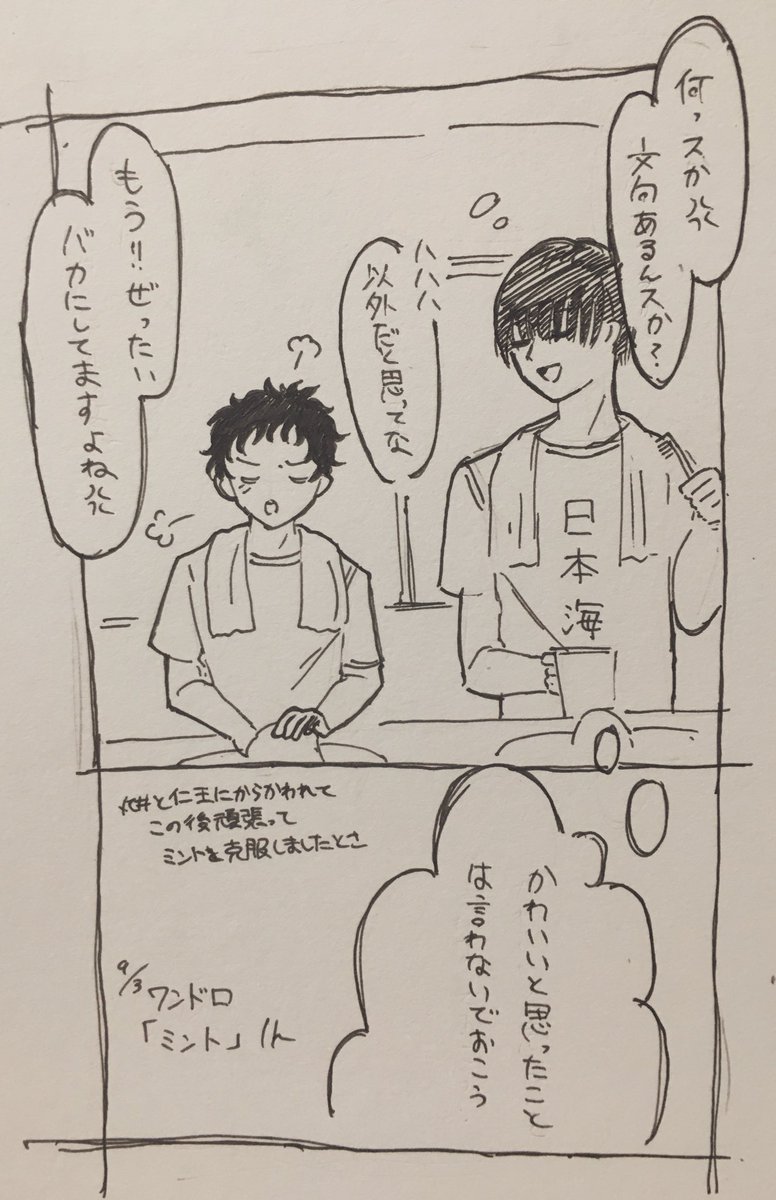 何っスか
文句あるんスか?
ハハハ
以外だと思ってな
もう!!ぜったい
バカにしてますよね
日本海
かわいいと思ったこと
は言わないでおこう
と仁王にからかわれて
この後頑張って
ミントを克服しましたとさ
9/3 ワンドロ
「ミント」 1h